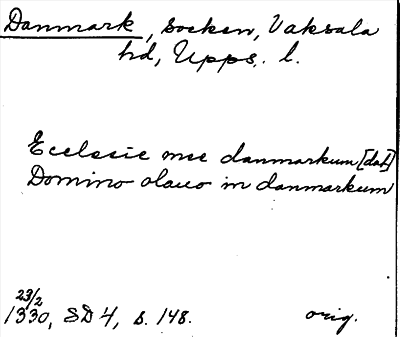 Danmark, socken, Vaksala
hd, Upps. l.
Ecclesie mee danmarkum [dat]
Domino olauo in danmarkum
23/2
1330, SD 4, s. 148. orig.